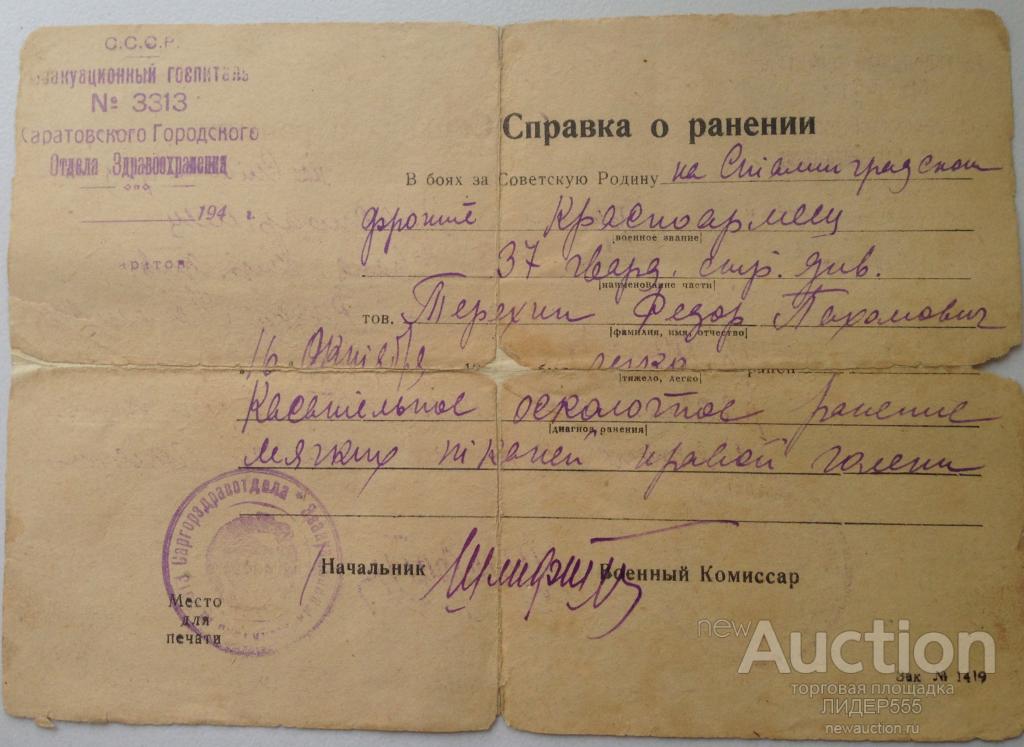 С.С.С.Р.
Эвакуационный госпиталь
№ 3313
Саратовского Городского
Отдела Здравоохранения
194 г.
Справка о ранении
В боях за Советскую Родину на Сталинградском
фронте Красноармеец
военное звание
37 гвард. стр. див.
наименование части
тов. Терехин Федор Пахомович
фамилия, имя, отчество
"16" Октября легко ранен
тяжело, легко
Касательное осколочное ранение
диагноз ранения
мягких тканей правой голени
Саргорздравотдела
Начальник Военный Комиссар
Место
для
печати
Зак № 1419
newAuction
торговая площадка
ЛИДЕР555
newauction.ru